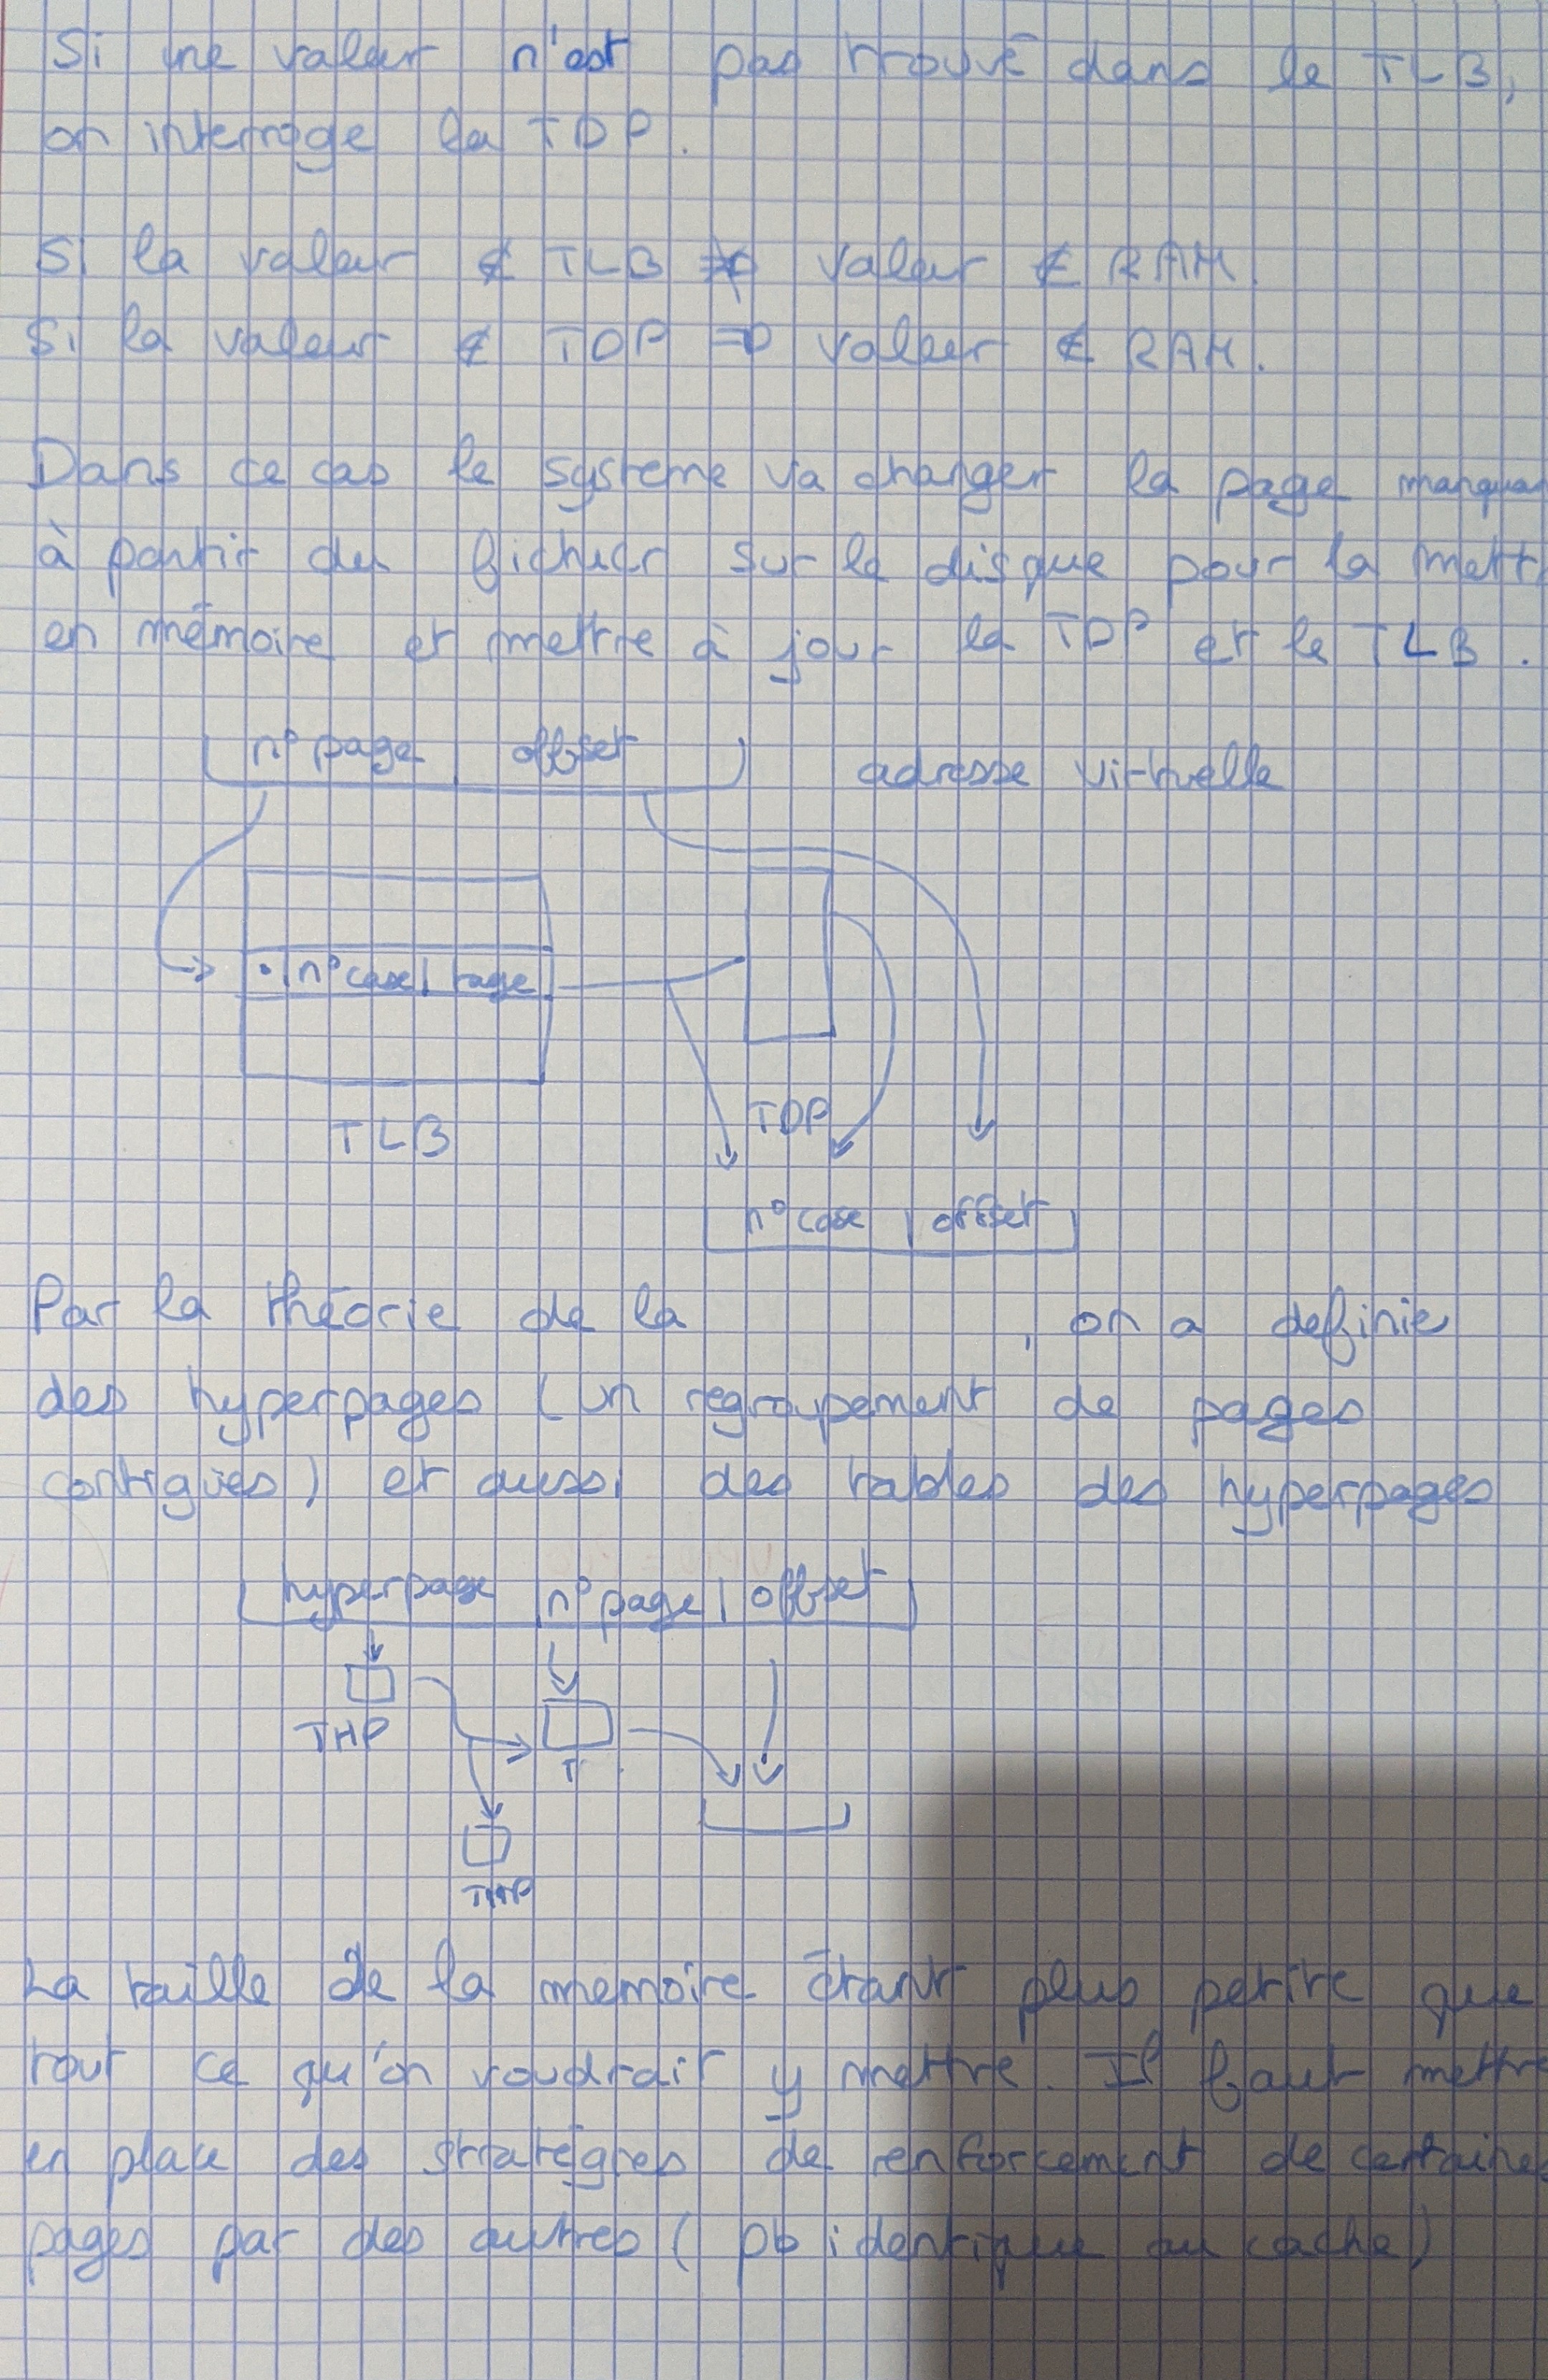 Si une valeur n'est pas trouvé dans le TLB,
on interroge la TDP.
Si la valeur ∉ TLB ⇏ valeur ∉ RAM.
Si la valeur ∉ TDP ⇒ valeur ∉ RAM.
Dans ce cas le système va charger la page manquan
à partir du fichier sur le disque pour la mettr
en mémoire et mettre à jour la TDP et le TLB.
n° page | offset adresse virtuelle
• | n° case | page
TLB
TDP
n° case | offset
Par la théorie de la , on a definie
des hyperpages (un regroupement de pages
contigües) et aussi des tables des hyperpages
hyperpage | n° page | offset
THP
T
THP
La taille de la memoire étant plus petite que
tout ce qu'on voudrait y mettre. Il faut mettre
en place des stratégies de renforcement de certaines
pages par des autres (pb identique au cache)